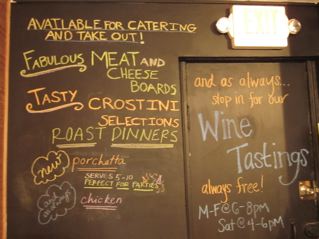 AVAILABLE FOR CATERING
AND TAKE OUT!
FABULOUS MEAT AND
CHEESE
BOARDS
TASTY CROSTINI
SELECTIONS
ROAST DINNERS
new! porchetta
SERVES 5-10
PERFECT FOR PARTIES
chicken
EXIT
and as always...
stop in for our
Wine
Tastings
always free!
M-F@6-8pm
Sat@4-6pm